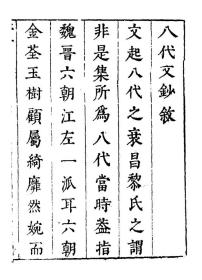 八代文鈔敘
文起八代之衰昌黎氏之謂
非是集所爲八代當時葢指
魏晉六朝江左一派耳六朝
金荃玉樹顧屬綺靡然婉而